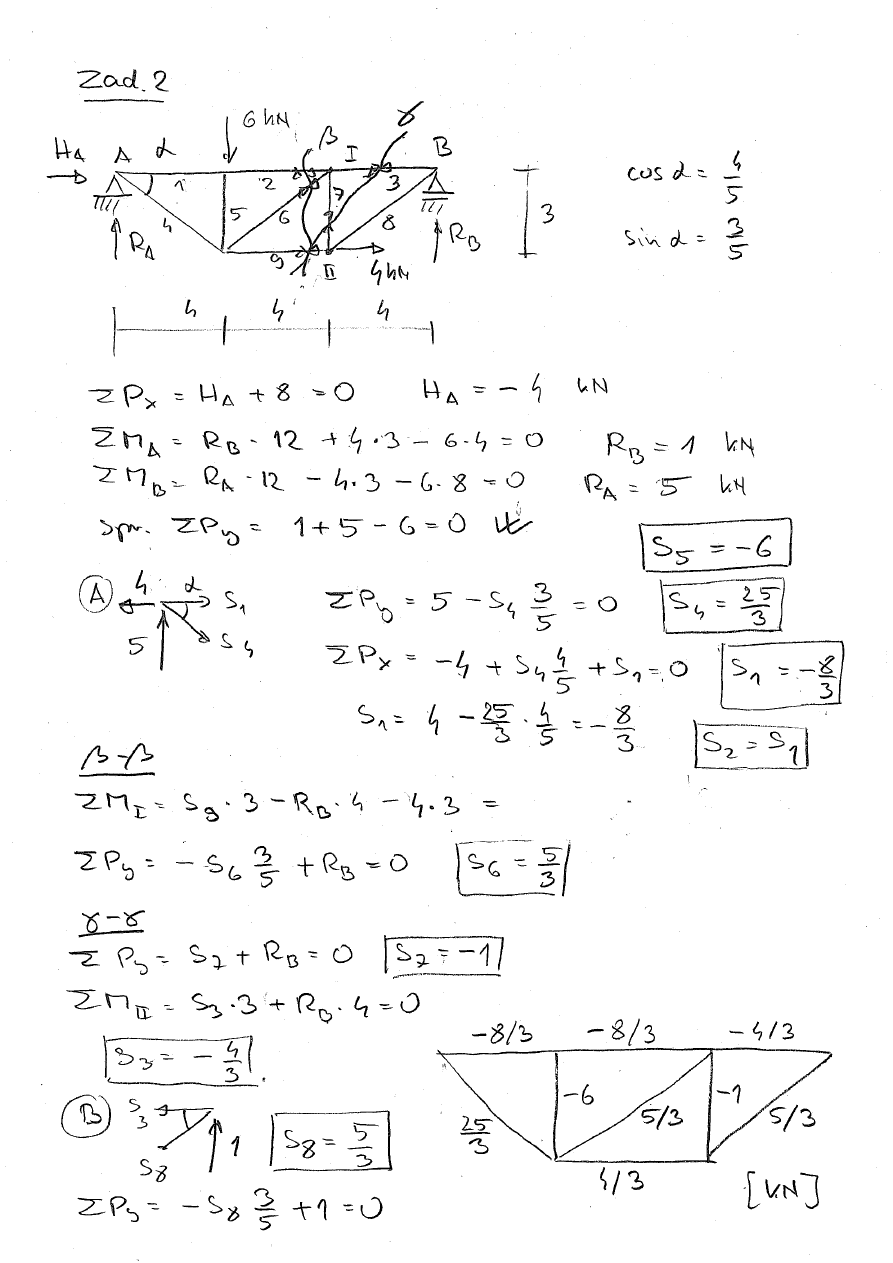 Zad. 2
6 kN
β γ
H_A A α I B
1 2 3
4 5 6 7 8
R_A R_B
9 II 4 kN
3
cos α = 4/5
sin α = 3/5
4 4 4
ΣP_x = H_A + 8 = 0 H_A = -4 kN
ΣM_A = R_B · 12 + 4·3 - 6·4 = 0 R_B = 1 kN
ΣM_B = R_A · 12 - 4·3 - 6·8 = 0 R_A = 5 kN
spr. ΣP_y = 1 + 5 - 6 = 0
S_5 = -6
Ⓐ 4 α S_1
5 S_4
ΣP_y = 5 - S_4 3/5 = 0 S_4 = 25/3
ΣP_x = -4 + S_4 4/5 + S_1 = 0 S_1 = -8/3
S_1 = 4 - 25/3 · 4/5 = -8/3
S_2 = S_1
β-β
ΣM_I = S_9 · 3 - R_B · 4 - 4·3 =
ΣP_y = -S_6 3/5 + R_B = 0 S_6 = 5/3
γ-γ
ΣP_y = S_7 + R_B = 0 S_7 = -1
ΣM_II = S_3 · 3 + R_B · 4 = 0
S_3 = -4/3
Ⓑ S_3
S_8 1
S_8 = 5/3
ΣP_y = -S_8 3/5 + 1 = 0
-8/3 -8/3 -4/3
25/3 -6 5/3 -1 5/3
4/3
[kN]